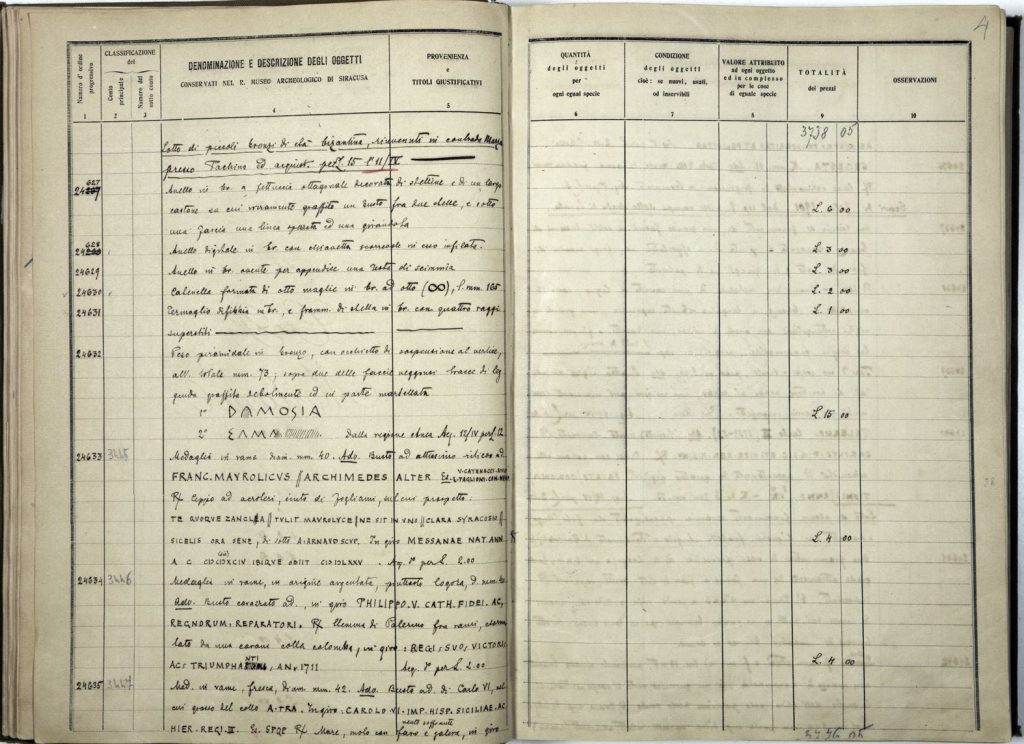 4
Numero d'ordine progressivo
CLASSIFICAZIONE
del
Conto principale
Numero del sotto conto
DENOMINAZIONE E DESCRIZIONE DEGLI OGGETTI
CONSERVATI NEL R. MUSEO ARCHEOLOGICO DI SIRACUSA
PROVENIENZA
e
TITOLI GIUSTIFICATIVI
QUANTITÀ
degli oggetti
per
ogni egual specie
CONDIZIONE
degli oggetti
cioè: se nuovi, usati,
od inservibili
VALORE ATTRIBUITO
ad ogni oggetto
ed in complesso
per le cose
di eguale specie
TOTALITÀ
dei prezzi
OSSERVAZIONI
1 2 3 4 5 6 7 8 9 10
3738 05
Lotto di piccoli bronzi di età bizantina, rinvenuti in contrada
presso Pachino ed acquist. per L. 15 l'11/IV
24627 Anello in br. a fettuccia ottagonale decorata di stelline e di un largo
castone su cui variamente graffito un busto fra due stelle, e sotto
una fascia una linea spezzata ed una girandola L. 6 00
24628 Anello digitale in br. con chiavetta scorrevole in esso infilata. L. 3 00
24629 Anello in br. avente per appendice una testa di scimmia L. 3 00
24630 Catenella formata di otto maglie in br. ad otto (∞), l. mm. 165 L. 2 00
24631 Fermaglio di fibbia in br., e framm. di stella in br. con quattro raggi L. 1 00
superstiti
24632 Peso piramidale in bronzo, con occhietto di sospensione al vertice,
alt. totale mm. 73; sopra due delle faccie veggonsi tracce di leg
genda graffita debolmente ed in parte martellata
1° DAMOSIA L. 15 00
2° ΕΑΜΑ Dalla regione Acq. 12/IV per L. 12
24633 3445 Medaglia in rame diam. mm. 40. Ado. Busto ad
FRANC. MAYROLICVS // ARCHIMEDES ALTER Es. V. CATENACCI
L. TAGLIONI
R/ Ceppo ad cinto di fogliami, sul cui prospetto:
TE QUOQUE ZANCLÆA // TVLIT MAVROLYCE / NE SIT IN VNO // CLARA SYRACOSIO //
SICELIS ORA SENE, di sotto A. ARNAVD SCVP. In giro MESSANAE NAT. ANN L. 4 00
A C CIƆCDXCIV IBIQVE OBIIT CIƆIƆLXXV. Acq. per L. 2.00
24634 3446 Medaglia in rame, in origine argentata, piuttosto logora, d. mm. 40
Ado. Busto corazzato ad., in giro PHILIPPO. V. CATH. FIDEI. AC,
REGNORUM: REPARATORI. R/ Stemma di Palermo fra rami,
lato da una corona colla colomba, in giro: REGI: SVO: VICTORI
AC: TRIUMPHANTI, AN, 1711 Acq. per L. 2.00 L. 4 00
24635 3447 Med. in rame, fresca, diam. mm. 42. Ado. Busto ad. di Carlo VI, nel
cui grosso del collo A. TRA. In giro: CAROLO VI. IMP. HISP. SICILIAE. AC
HIER. REGI. III. Es. SPQP R/ Mare, molo con faro e galera, in giro
vento soffiante
3746 05